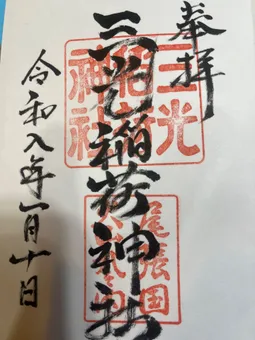 奉拝
三光稲荷神社
令和八年一月十日
三光
稲荷
神社
尾張国